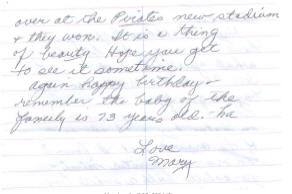 over at the Pirates new stadium
+ they won. It is a thing
of beauty Hope you get
to see it sometime.
Again happy birthday -
remember the baby of the
family is 73 years old. ha
Love
Mary